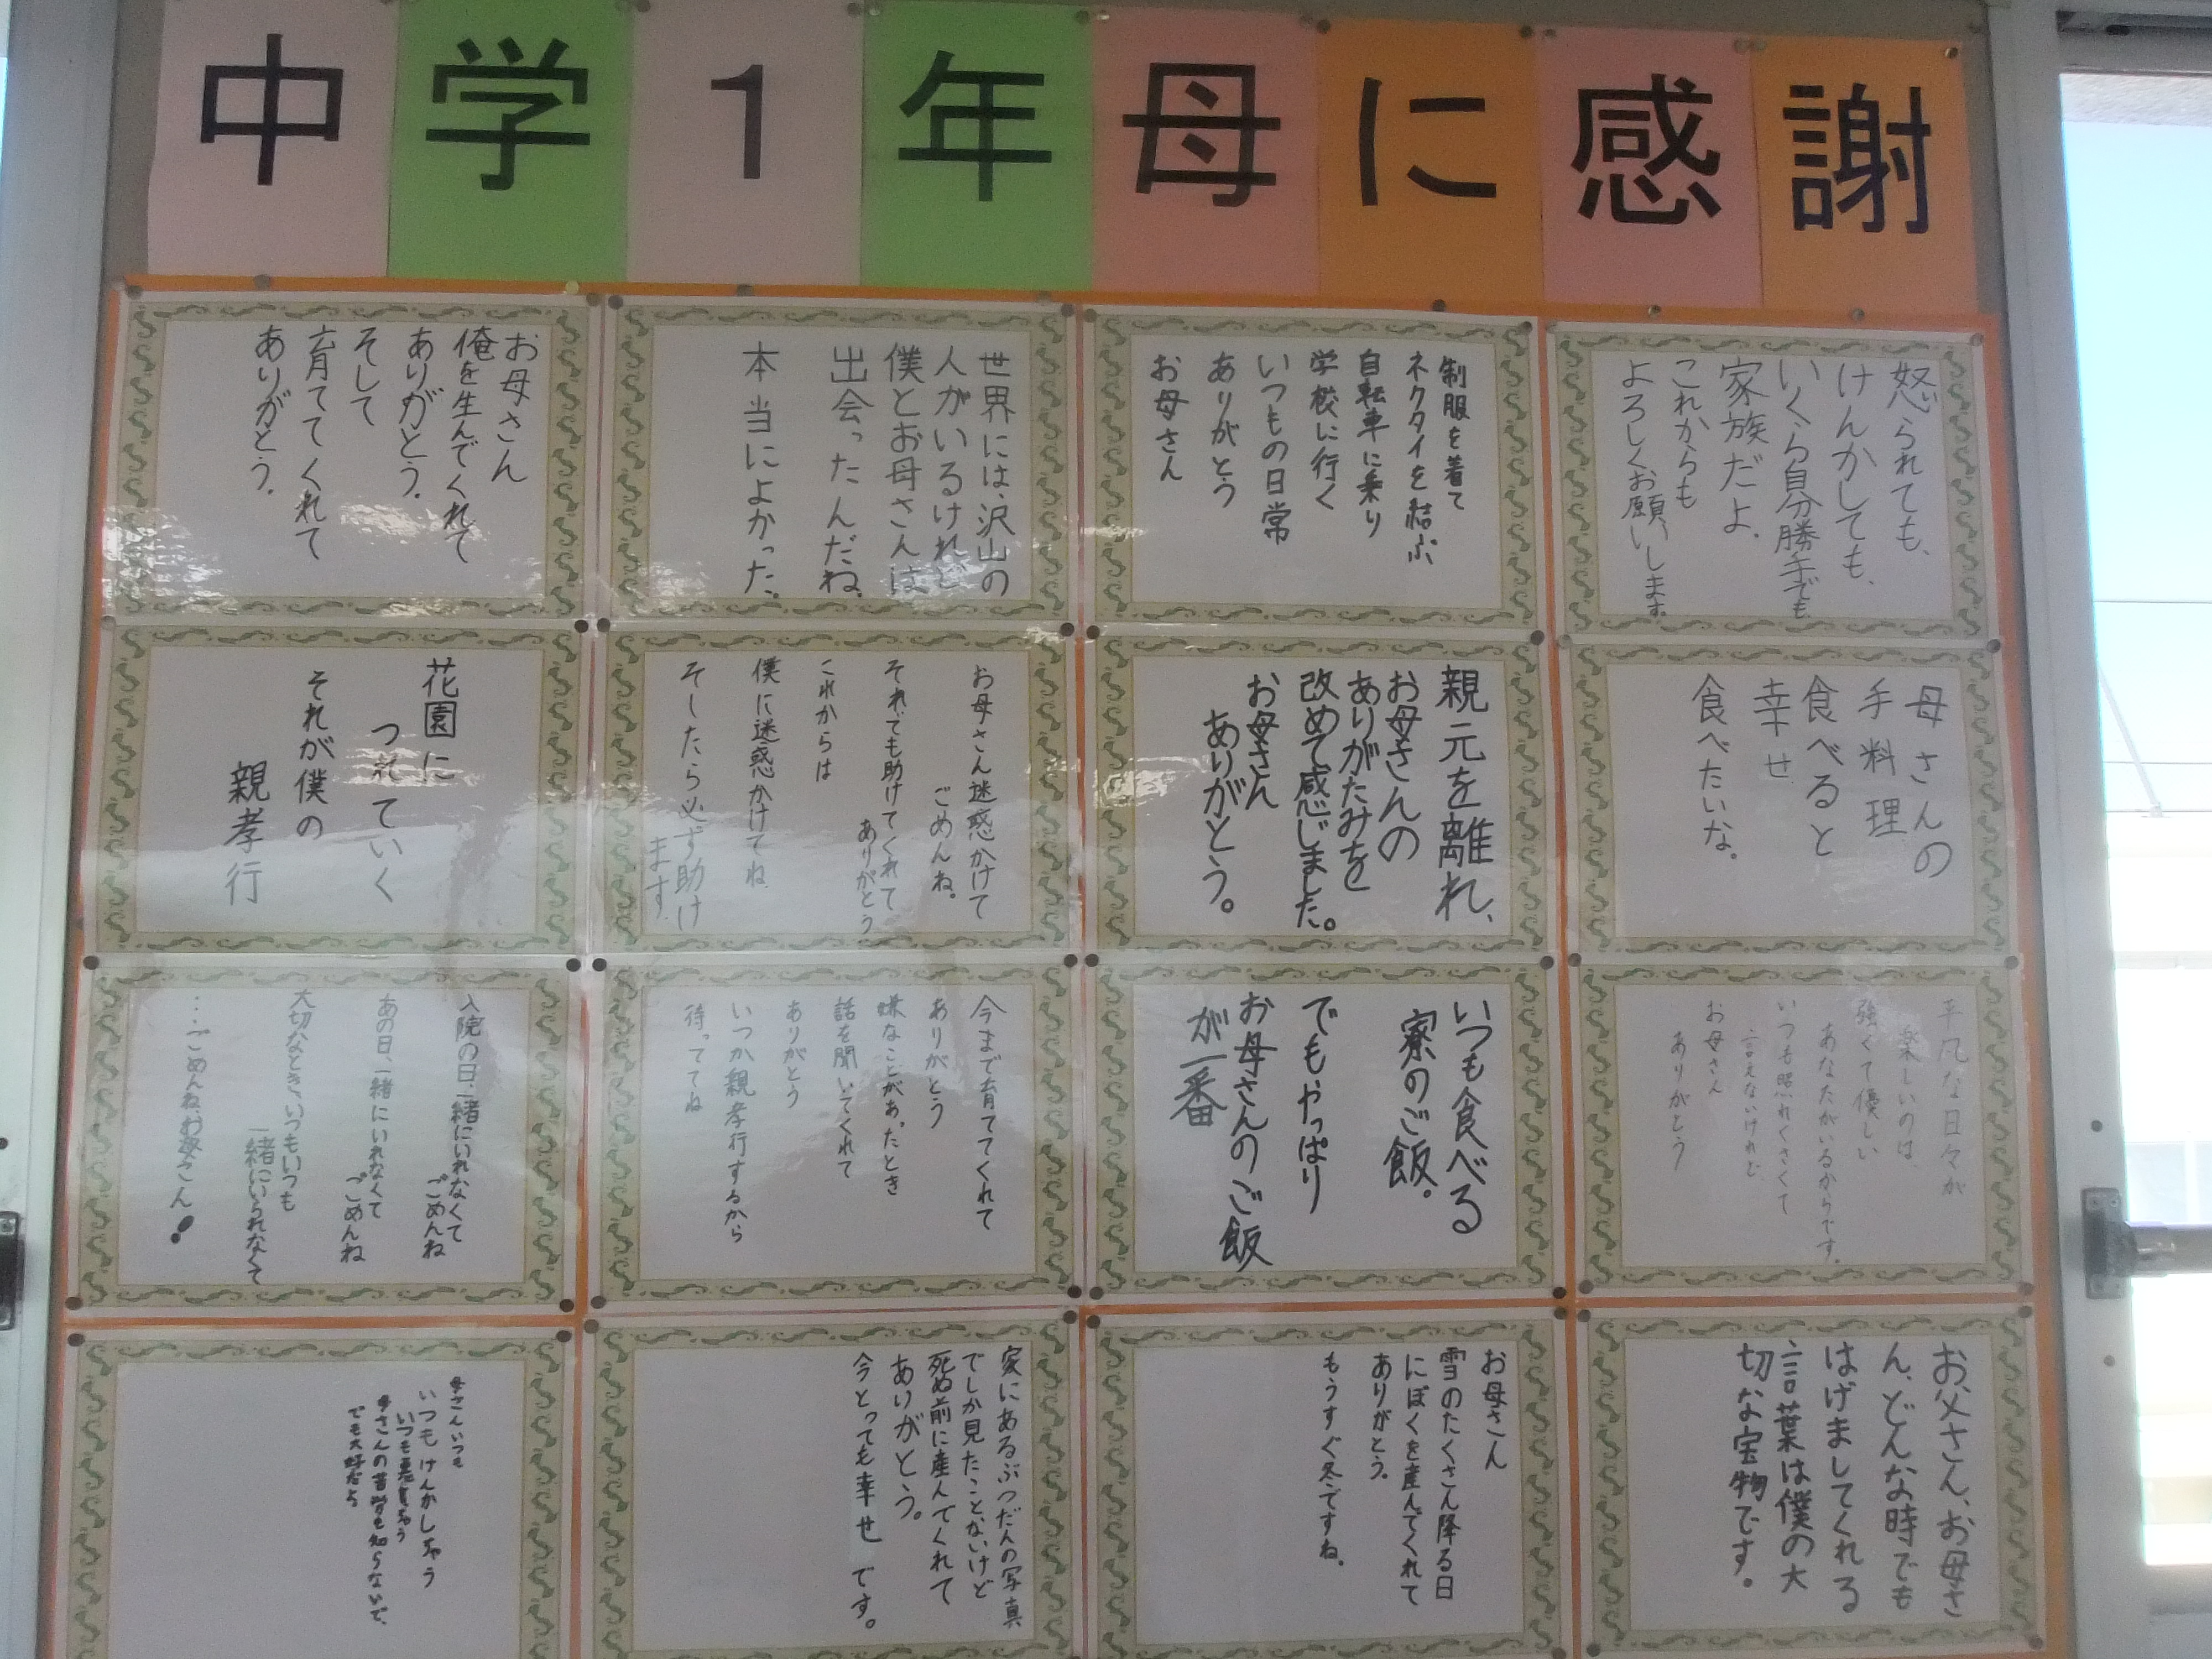 中学1年母に感謝
怒られても、
けんかしても、
いくら自分勝手でも
家族だよ、
これからも
よろしくお願いします。
制服を着て
ネクタイを結ぶ
自転車に乗り
学校に行く
いつもの日常
ありがとう
お母さん
世界には、沢山の
人がいるけれど
僕とお母さんは
出会ったんだね。
本当によかった。
お母さん
俺を生んでくれて
ありがとう。
そして
育ててくれて
ありがとう。
母さんの
手料理
食べると
幸せ
食べたいな。
親元を離れ、
お母さんの
ありがたみを
改めて感じました。
お母さん
ありがとう。
お母さん迷惑かけて
ごめんね。
それでも助けてくれて
ありがとう
これからは
僕に迷惑かけてね
そしたら必ず助け
ます。
花園に
つれていく
それが僕の
親孝行
平凡な日々が
楽しいのは、
強くて優しい
あなたがいるからです。
いつも照れくさくて
言えないけれど
お母さん
ありがとう
いつも食べる
寮のご飯。
でもやっぱり
お母さんのご飯
が一番
今まで育ててくれて
ありがとう
嫌なことがあったとき
話を聞いてくれて
ありがとう
いつか親孝行するから
待っててね
入院の日、一緒にいれなくて
ごめんね
あの日、一緒にいれなくて
ごめんね
大切なとき、いつもいつも
一緒にいられなくて
…ごめんね、お母さん!
お父さん、お母さ
ん、どんな時でも
はげましてくれる
言葉は僕の大
切な宝物です。
お母さん
雪のたくさん降る日
にぼくを産んでくれて
ありがとう。
もうすぐ冬ですね。
家にあるぶつだんの写真
でしか見たことないけど
死ぬ前に産んでくれて
ありがとう。
今とっても幸せです。
母さんいつも
いつもけんかしちゃう
いつも悪
母さんの苦労も知らないで、
でも大好だよ